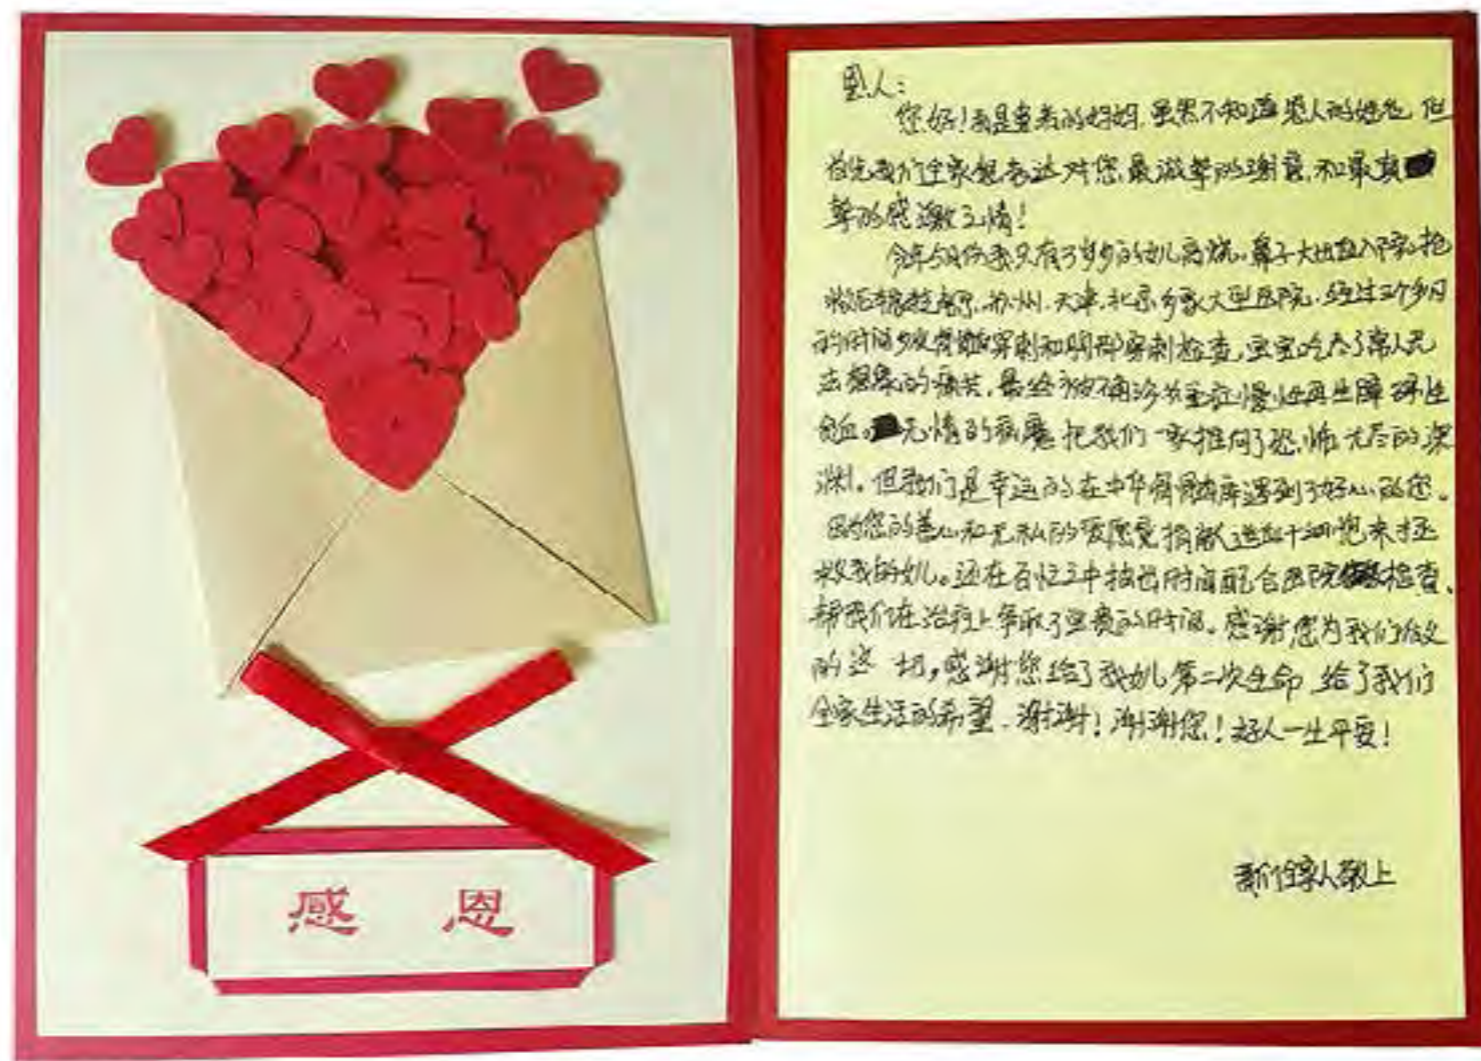 感 恩
恩人：
您好！我是患者的妈妈.虽然不知道恩人的姓名,但
首先我们全家想表达对您最诚挚的谢意,和最真
挚的感激之情！
今年5月份我只有3岁多的女儿高烧.鼻子大出血入院抢
救后辗转 苏州.天津.北京多家大型医院.经过三个多月
的时间 骨髓穿刺和 穿刺检查,宝宝吃尽了常人无
法想象的痛苦,最终 被确诊为重症慢性再生障碍性
贫血。 无情的病魔把我们一家推向了恐怖无尽的深
渊。但我们是幸运的在中华骨髓库遇到了好心的您。
因为您的善心和无私的爱愿意捐献造血干细胞来拯
救我的女儿。还在百忙之中抽出时间配合医院 检查、
帮我们在治疗上争取了宝贵的时间。感谢您为我们做
的这一切,感谢您给了我女儿第二次生命,给了我们
全家生活的希望、谢谢！谢谢您！好人一生平安！
我们全家人敬上